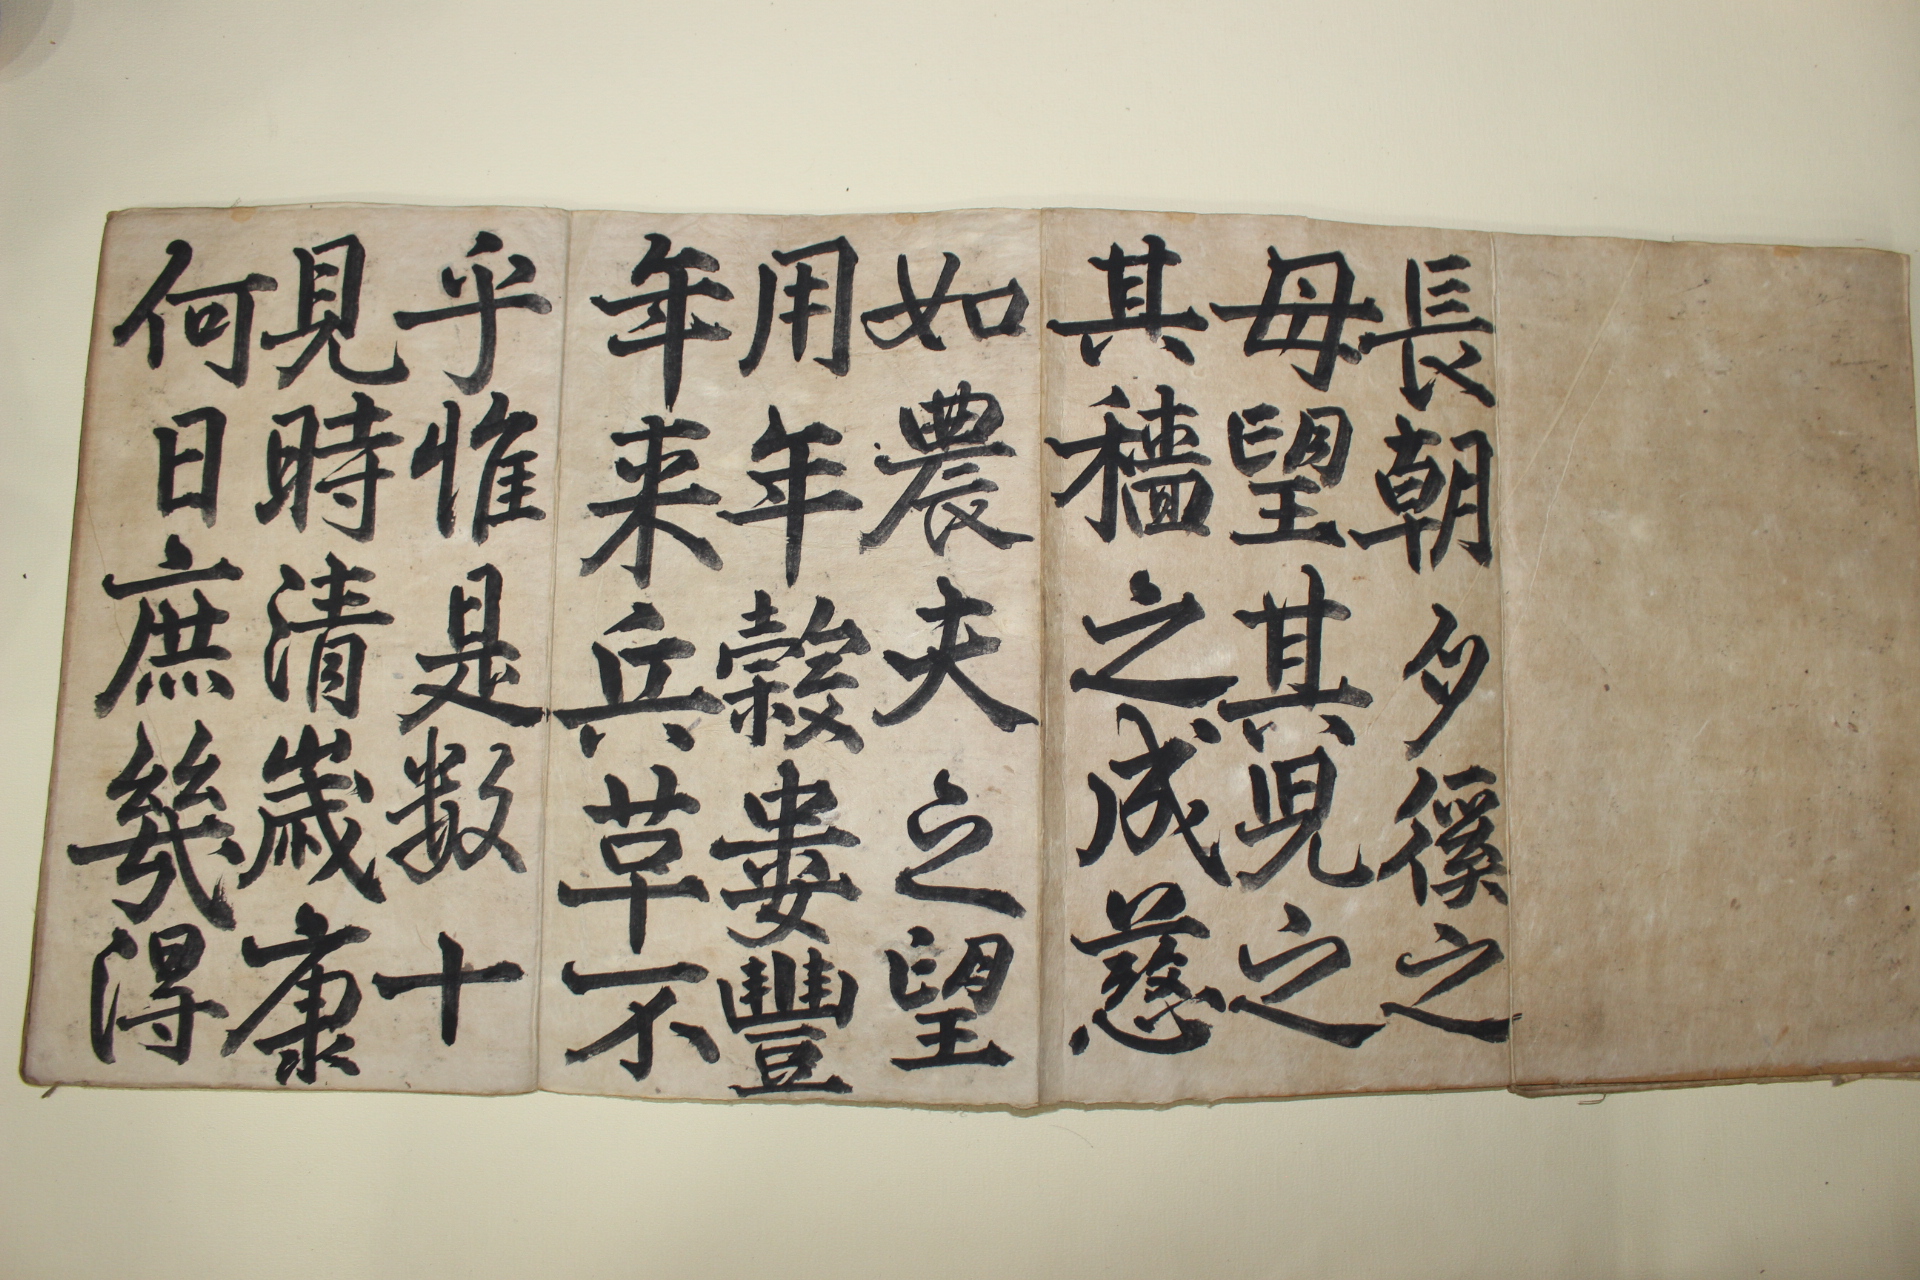 何日庶幾得
見時清歲康
乎惟是数十
年来兵革不
用年穀婁豐
如農夫之望
其穡之成慈
母望其児之
長朝夕徯之